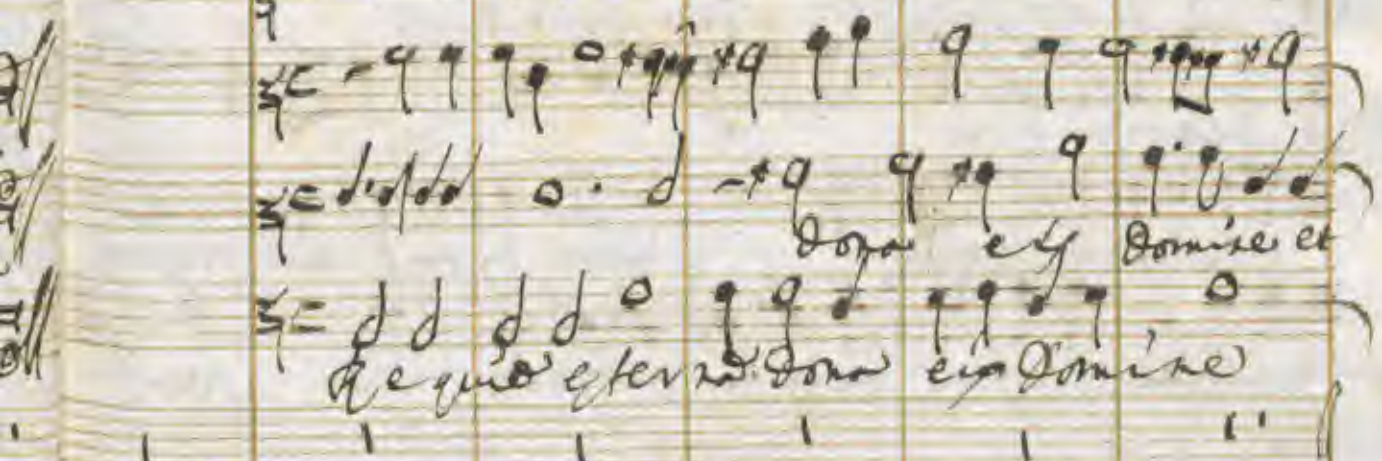 Dona eis Domine et
Requiē eterna dona eis Domine